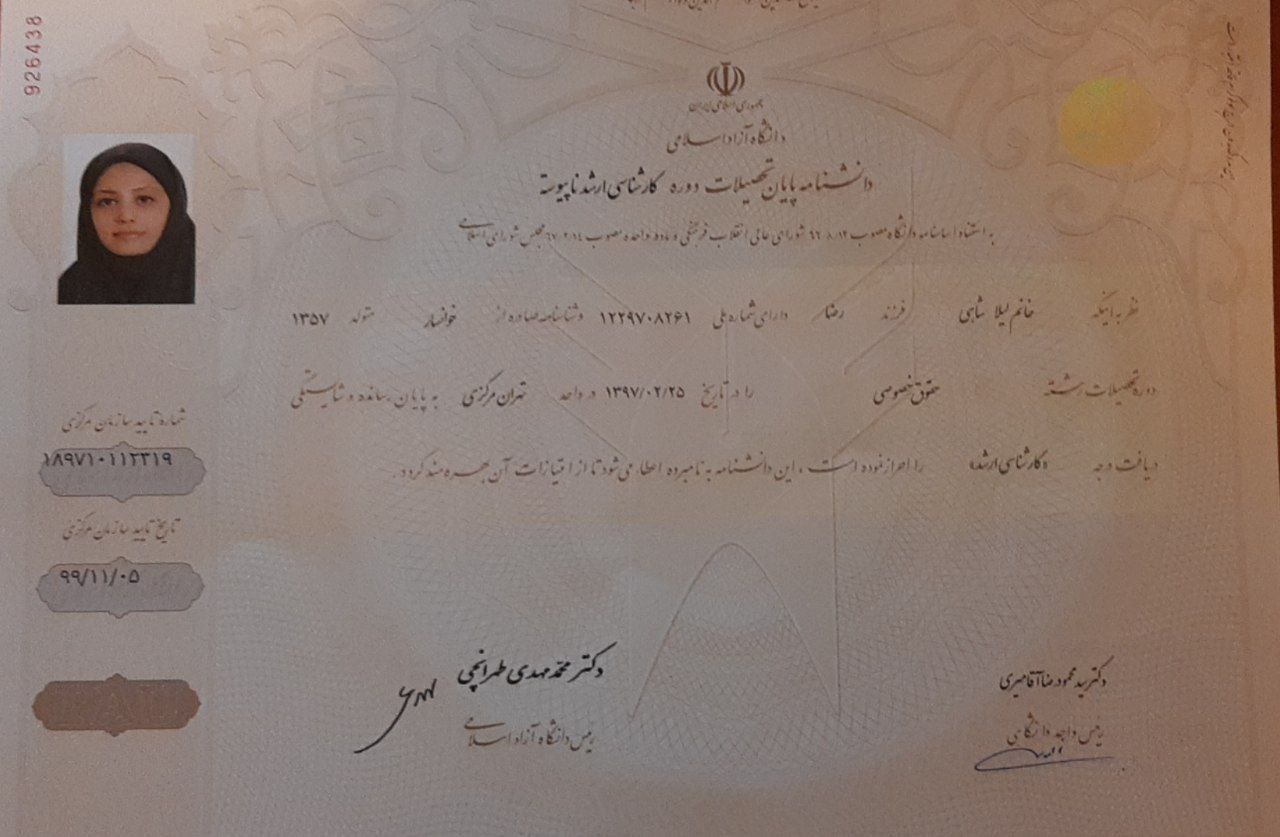 926438
جمهوری اسلامی ایران
دانشگاه آزاد اسلامی
دانشنامه پایان تحصیلات دوره کارشناسی ارشد ناپیوسته
به استناد اساسنامه دانشگاه مصوب شورای عالی انقلاب فرهنگی و ماده واحده مصوب مجلس شورای اسلامی
نظر به اینکه خانم لیلا شاهی فرزند رضا دارای شماره ملی ۱۲۲۹۷۰۸۲۶۱ و شناسنامه صادره از خوانسار متولد ۱۳۵۷
دوره تحصیلات رشته حقوق خصوصی را در تاریخ ۱۳۹۷/۰۲/۲۵ در واحد تهران مرکزی به پایان رسانده و شایستگی
دریافت درجه «کارشناسی ارشد» را احراز نموده است، این دانشنامه به نامبرده اعطا می شود تا از امتیازات آن بهره مند گردد.
شماره تایید سازمان مرکزی
۱۸۹۷۱۰۱۱۲۳۱۹
تاریخ تایید سازمان مرکزی
۹۹/۱۱/۰۵
دکتر سید محمود رضا آقامیری
رئیس واحد دانشگاهی
دکتر محمد مهدی طهرانچی
رئیس دانشگاه آزاد اسلامی